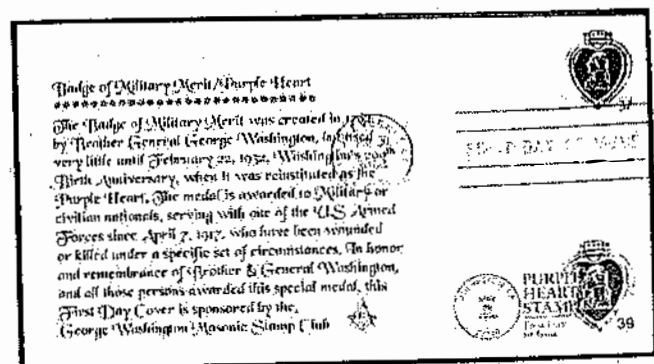 Badge of Military Merit/Purple Heart
The Badge of Military Merit was created in
by Brother General George Washington, but used
very little until February 22, 1932, Washington's
Birth Anniversary, when it was reinstituted as the
Purple Heart. The medal is awarded to Military or
civilian nationals, serving with one of the U.S. Armed
Forces since April 7, 1917, who have been wounded
or killed under a specific set of circumstances. In honor
and remembrance of Brother & General Washington,
and all those persons awarded this special medal, this
First Day Cover is sponsored by the,
George Washington Masonic Stamp Club
37
DAY OF ISSUE
PURPLE
HEART
STAMP
39